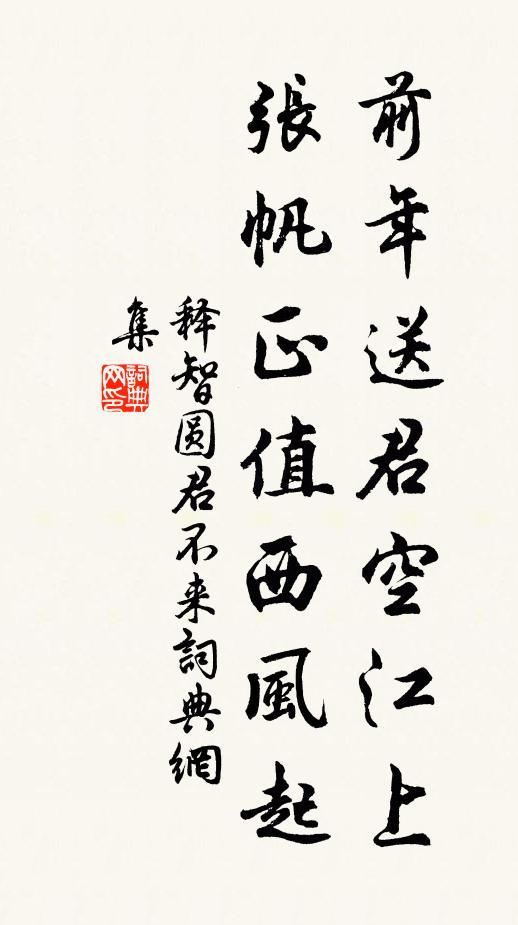 前年送君空江上
張帆正值西風起
释智圆君不来詞典網
集
詞典网印